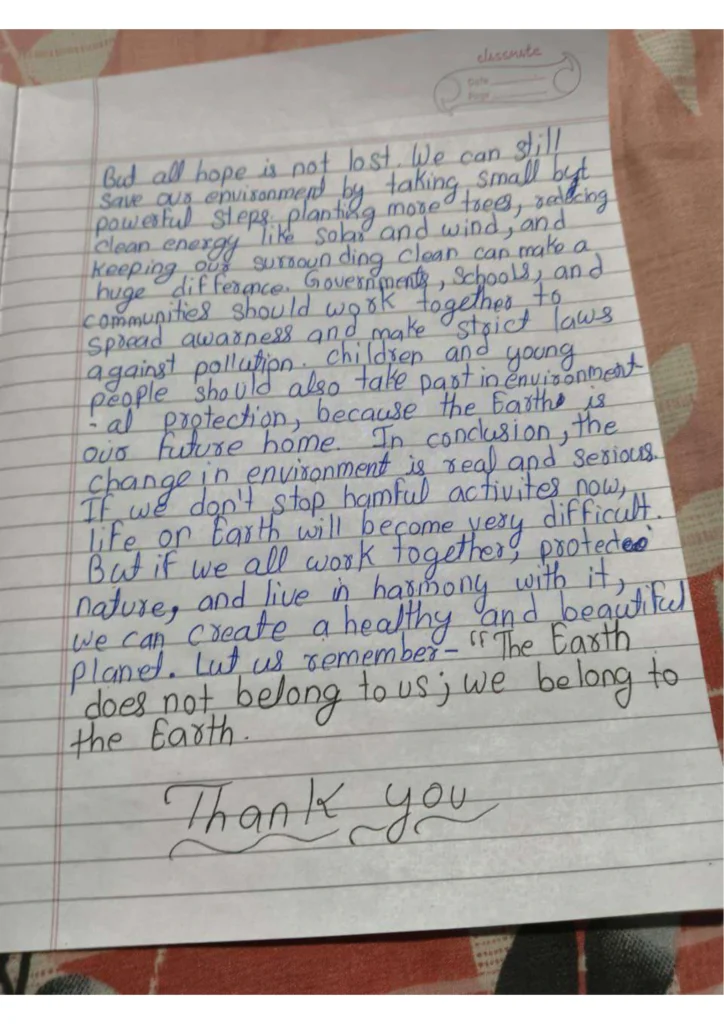 classmate
Date
Page
But all hope is not lost. We can still
save our environment by taking small byt
powerful steps. planting more trees, reducing
clean energy like solar and wind, and
keeping our surroun ding clean can make a
huge difference. Governments, schools, and
communities should work together to
spread awarness and make strict laws
against pollution. children and young
people should also take part in environment
-al protection, because the Earth is
our future home. In conclusion, the
change in environment is real and serious.
If we don't stop hamful activites now,
life on Earth will become very difficult.
But if we all work together, protect
nature, and live in harmony with it,
we can create a healthy and beautiful
planet. Lut us remember- "The Earth
does not belong to us; we belong to
the Earth.
Thank you